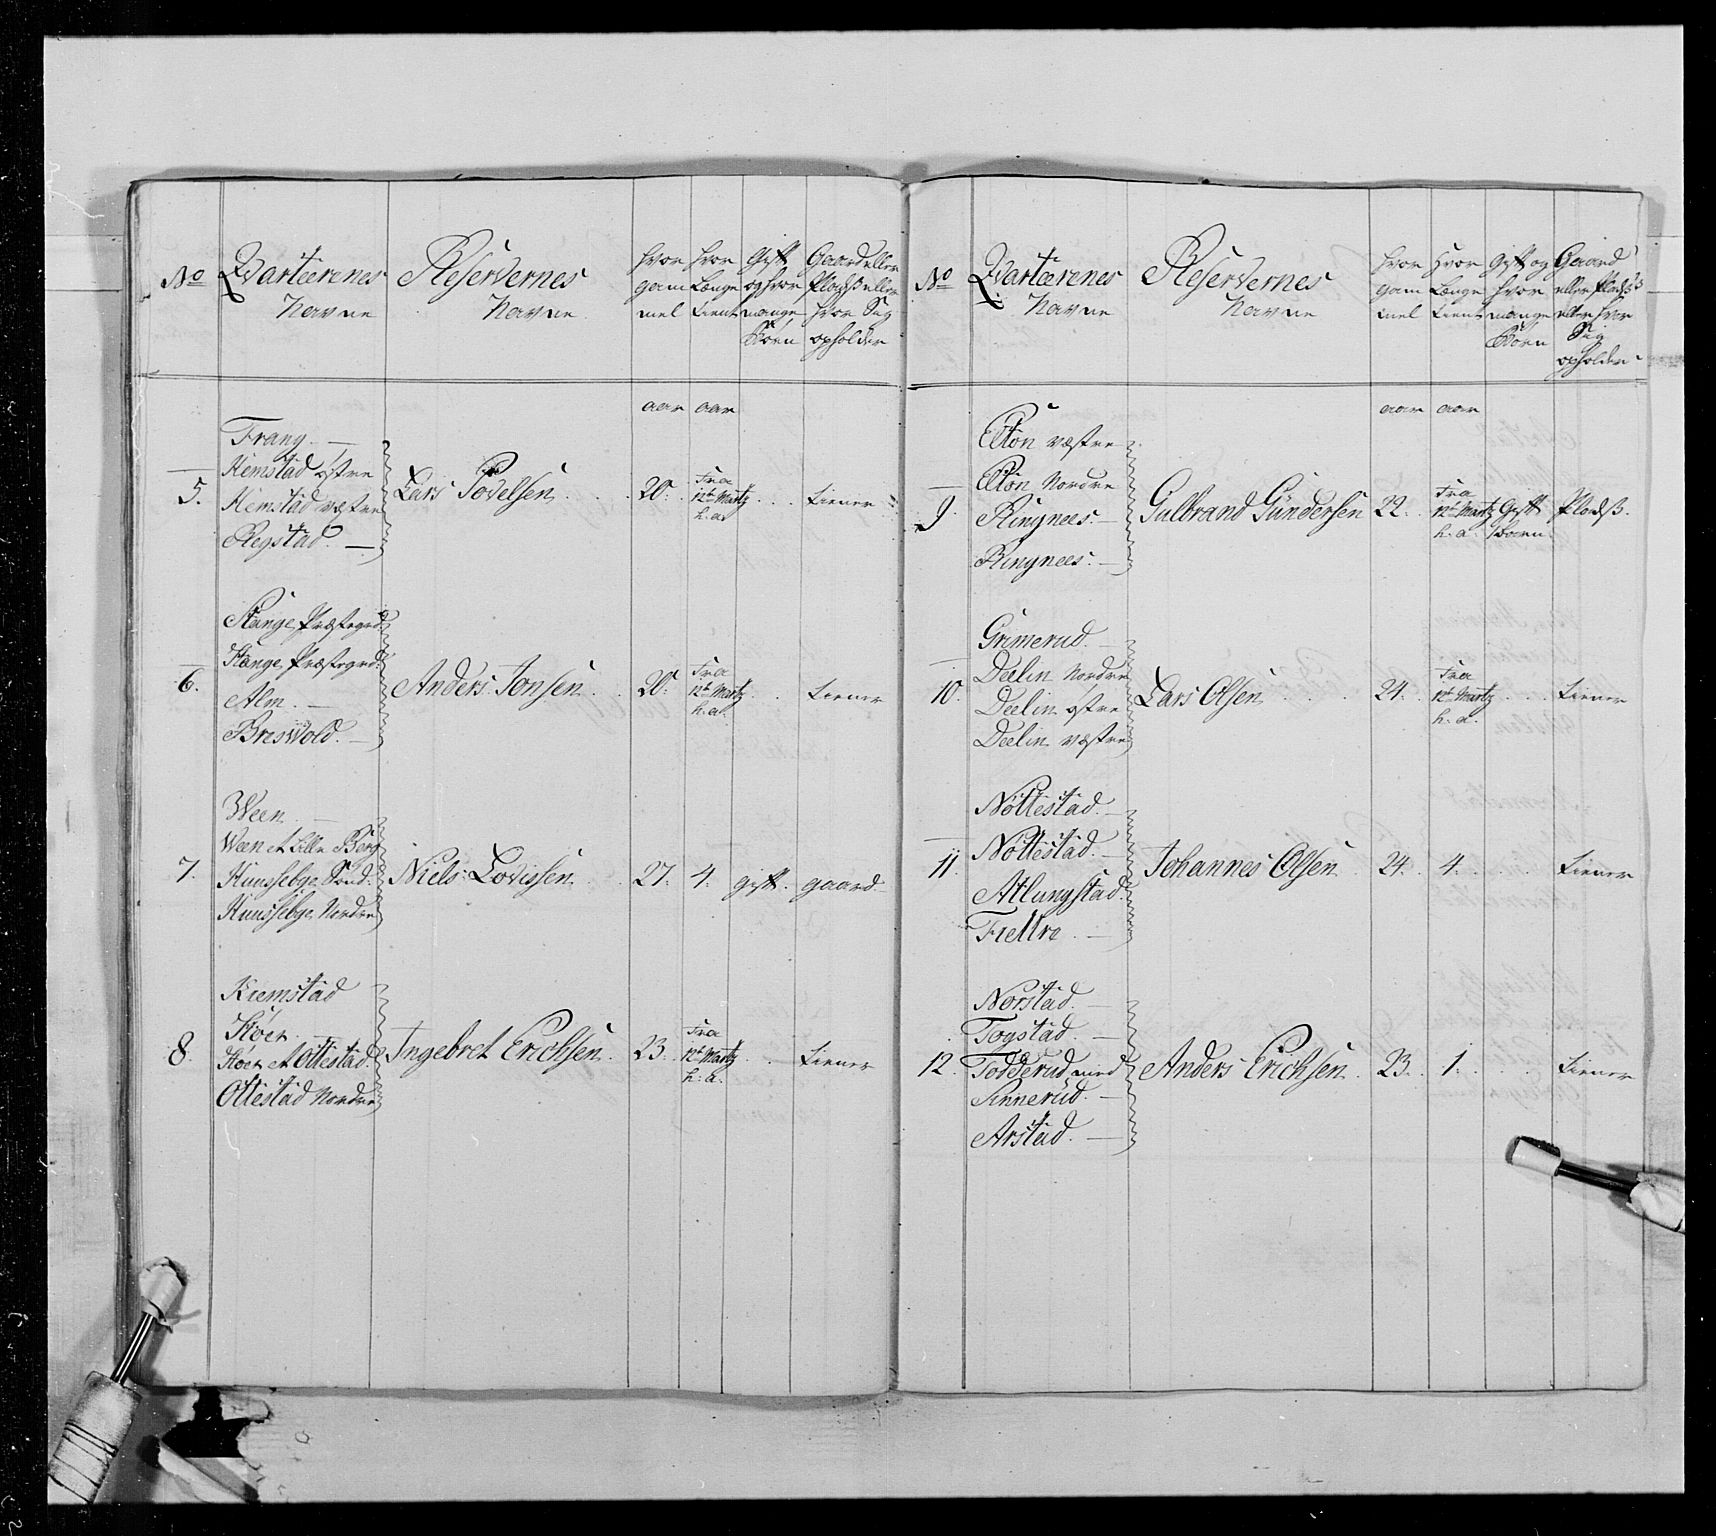 No
Qvarteerenes
Navne
Reservernes
Navne
hvor
gam
mel
hvor
Længe
tient
Gift
og hvor
mange
Börn
Gaard eller
Pladsz eller
hvor Sig
opholder
aar aar
5.
Frang. —
Hemstad östre
Hemstad væstre
Regstad. —
Lars Povelsen
20.
Fra
12te Martz
h. a.
tiener
6.
Stange Præstegrd
Stange Præstegrd
Alm. —
Breswold. —
Anders Jonsen
20.
Fra
12te Martz
h. a.
tiener
7.
Ween. —
Ween et Lille Berg
Huusebye Sönd:
Huusebye Nordre
Niels Lovissen
27.
4.
gift.
gaard.
8.
Kiemstad
Höer
Höer et Ottestad.
Ottestad Nordre
Ingebret Erichsen
23.
Fra
12te Martz
h. a.
tiener
No
Qvarteerenes
Navne
Reservernes
Navne
hvor
gam
mel
Hvor
Længe
tient
Gift og
hvor
mange
Börn
Gaard
eller Pladsz
eller hvor
Sig
opholder
aar aar
9.
Elton væstre
Elton Nordre
Ringnees. —
Ringnees. —
Gulbrand Gundersen
22.
Fra
12te Martz
h. a.
Gift
1 barn
Pladsz.
10.
Grimerud. —
Deelin Nordre
Deelin östre
Deelin væstre
Lars Olsen
24.
Fra
12te Martz
h. a.
tiener
11.
Nöttestad. —
Nöttestad. —
Atlungstad.
Fietre. —
Johannes Olsen
24.
4.
tiener
12.
Norstad. —
Togstad. —
Todderud med
Sinnerud. —
Arstad. —
Anders Erichsen
23.
1.
tiener